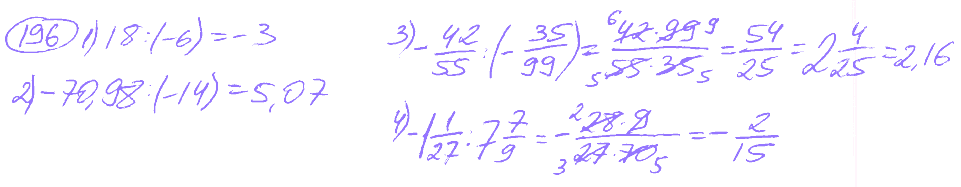 196 1) 18:(-6)=-3
2) -70,98:(-14)=5,07
3) -42/55:(-35/99)=42·99/55·35=54/25=2 4/25=2,16
4) -1 1/27:7 7/9=-28·9/27·70=-2/15